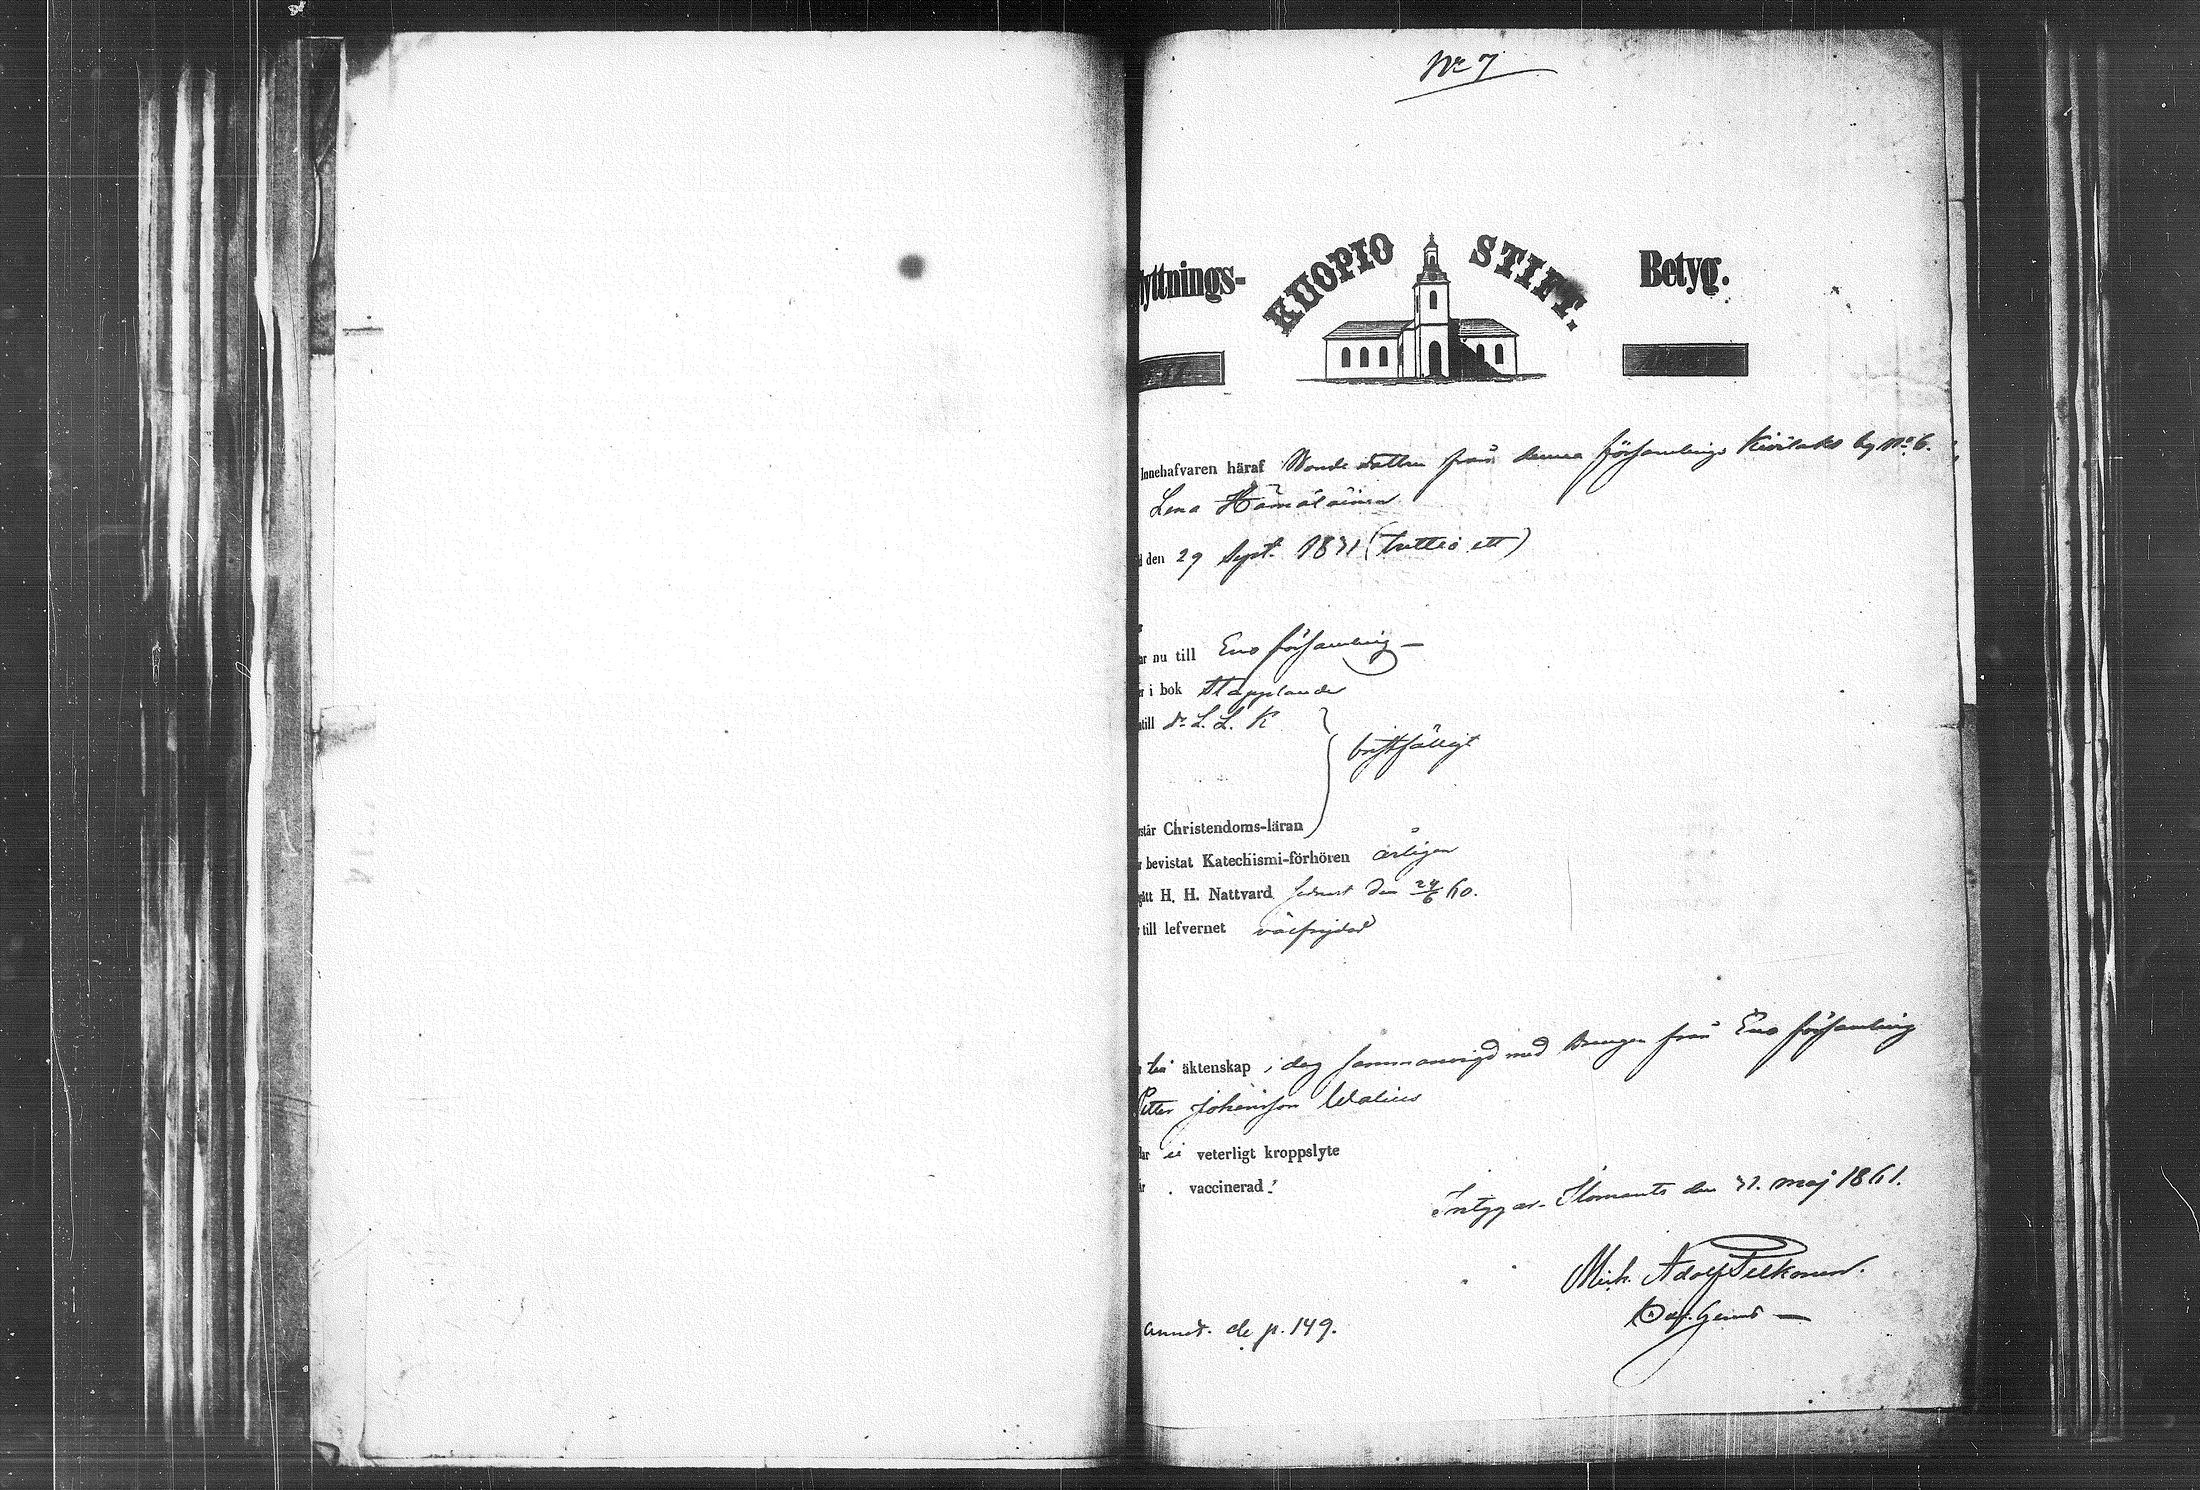 No 7
lyttnings- KUOPIO STIFT. Betyg.
Innehafvaren häraf Bonde dottren från denna församlings Kivilaks by No 6.
Lena Hämäläinen
d den 29 Sept. 1831 (trettio ett)
ar nu till Eno församling —
r i bok stapplande
till Dr L. L. K
bristfälligt
står Christendoms-läran
r bevistat Katechismi-förhören årligen
gått H. H. Nattvard senast den 24/6 60.
till lefvernet välfrejdad
äktenskap i dag sammanvigd med Drengen från Eno församling
Petter Johansson Walius
ar ei veterligt kroppslyte
är vaccinerad.
Intygar. Ilomants den 31. maj 1861.
Mich. Adolf Pelkonen.
annot. de p. 149.